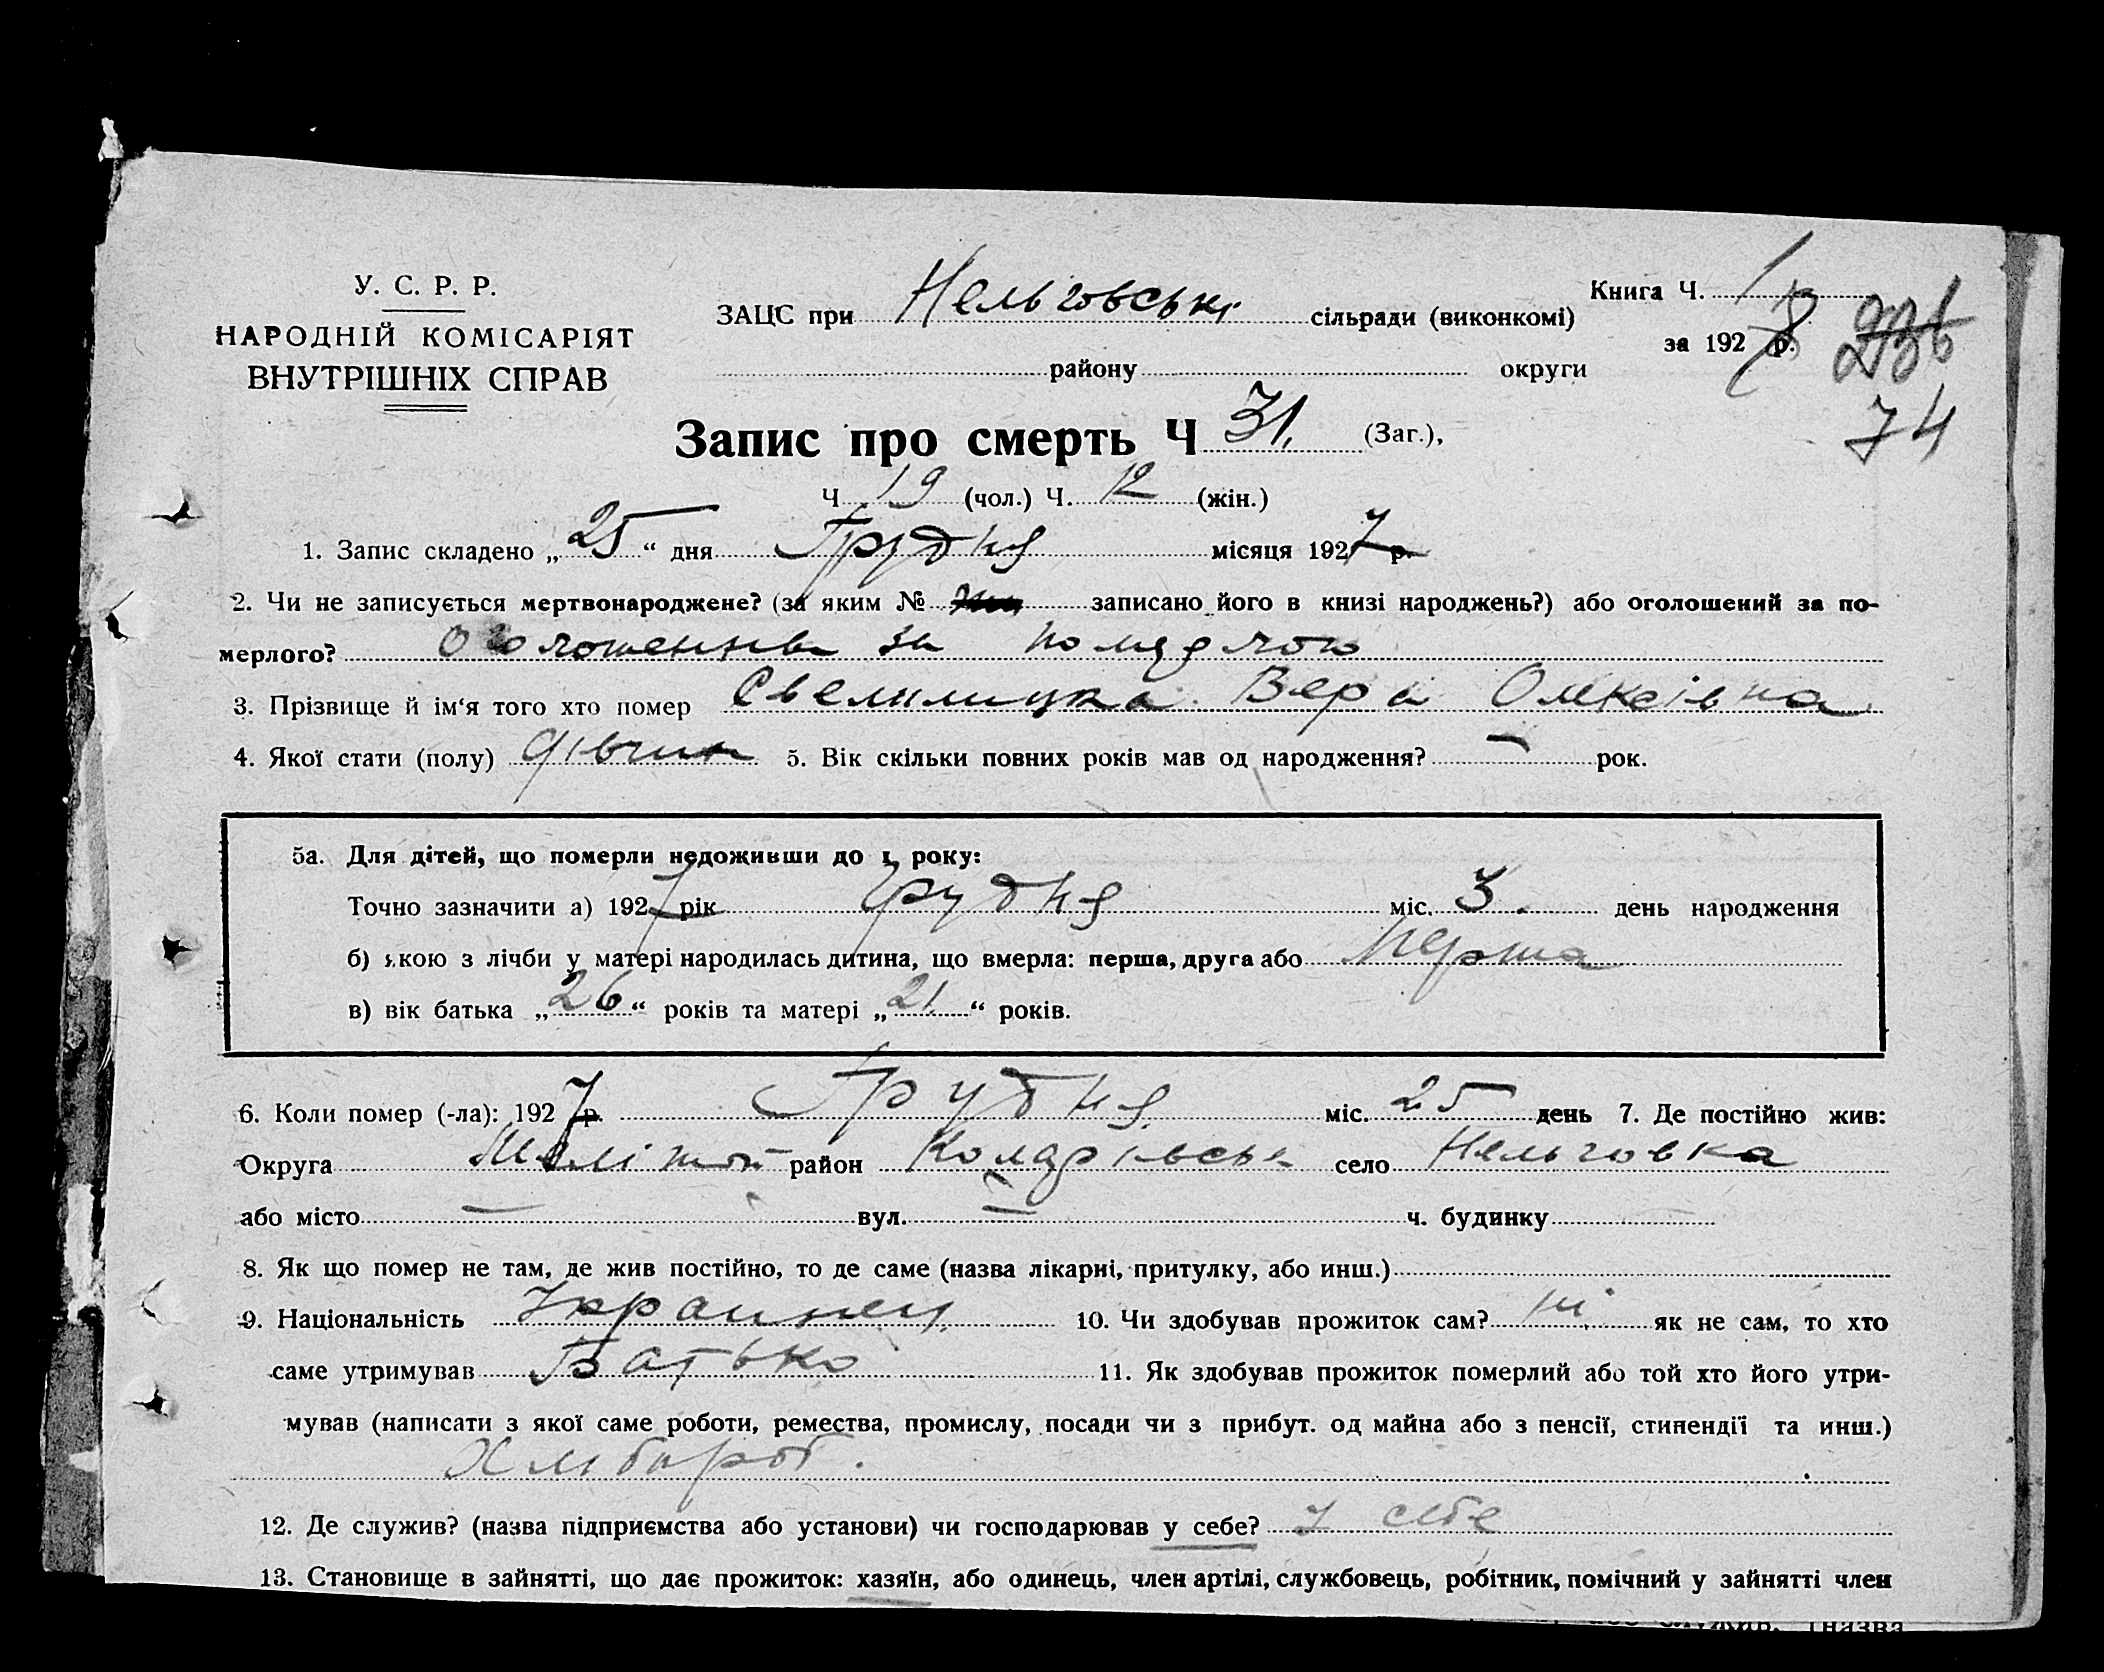 У. С. Р. Р.
НАРОДНІЙ КОМІСАРІЯТ
ВНУТРІШНІХ СПРАВ
ЗАЦС при Нельговські сільради (виконкомі)
району округи
Книга Ч. 1
за 192 р.
74
Запис про смерть Ч 31. (Заг.),
Ч 19 (чол.) Ч. 12 (жін.)
1. Запис складено „25“ дня Грудня місяця 1927 р.
2. Чи не записується мертвонароджене? (за яким № записано його в книзі народжень?) або оголошений за по-
мерлого? за помершою
3. Прізвище й ім'я того хто помер Вера Олексівна
4. Якої стати (полу) дівчина 5. Вік скільки повних років мав од народження? – рок.
5а. Для дітей, що померли недоживши до 1 року:
Точно зазначити а) 1927 рік грудня міс. 3. день народження
б) якою з лічби у матері народилась дитина, що вмерла: перша, друга або Перша
в) вік батька „26“ років та матері „21.“ років.
6. Коли помер (-ла): 1927 р. Грудня міс. 25 день 7. Де постійно жив:
Округа Меліпоп район село Нельговка
або місто – вул. – ч. будинку
8. Як що помер не там, де жив постійно, то де саме (назва лікарні, притулку, або инш.)
9. Національність Украинец. 10. Чи здобував прожиток сам? ні як не сам, то хто
саме утримував Батько 11. Як здобував прожиток померлий або той хто його утри-
мував (написати з якої саме роботи, ремества, промислу, посади чи з прибут. од майна або з пенсії, стипендії та инш.)
Хлібороб.
12. Де служив? (назва підприємства або установи) чи господарював у себе? у себе
13. Становище в зайнятті, що дає прожиток: хазяїн, або одинець, член артілі, службовець, робітник, помічний у зайнятті член